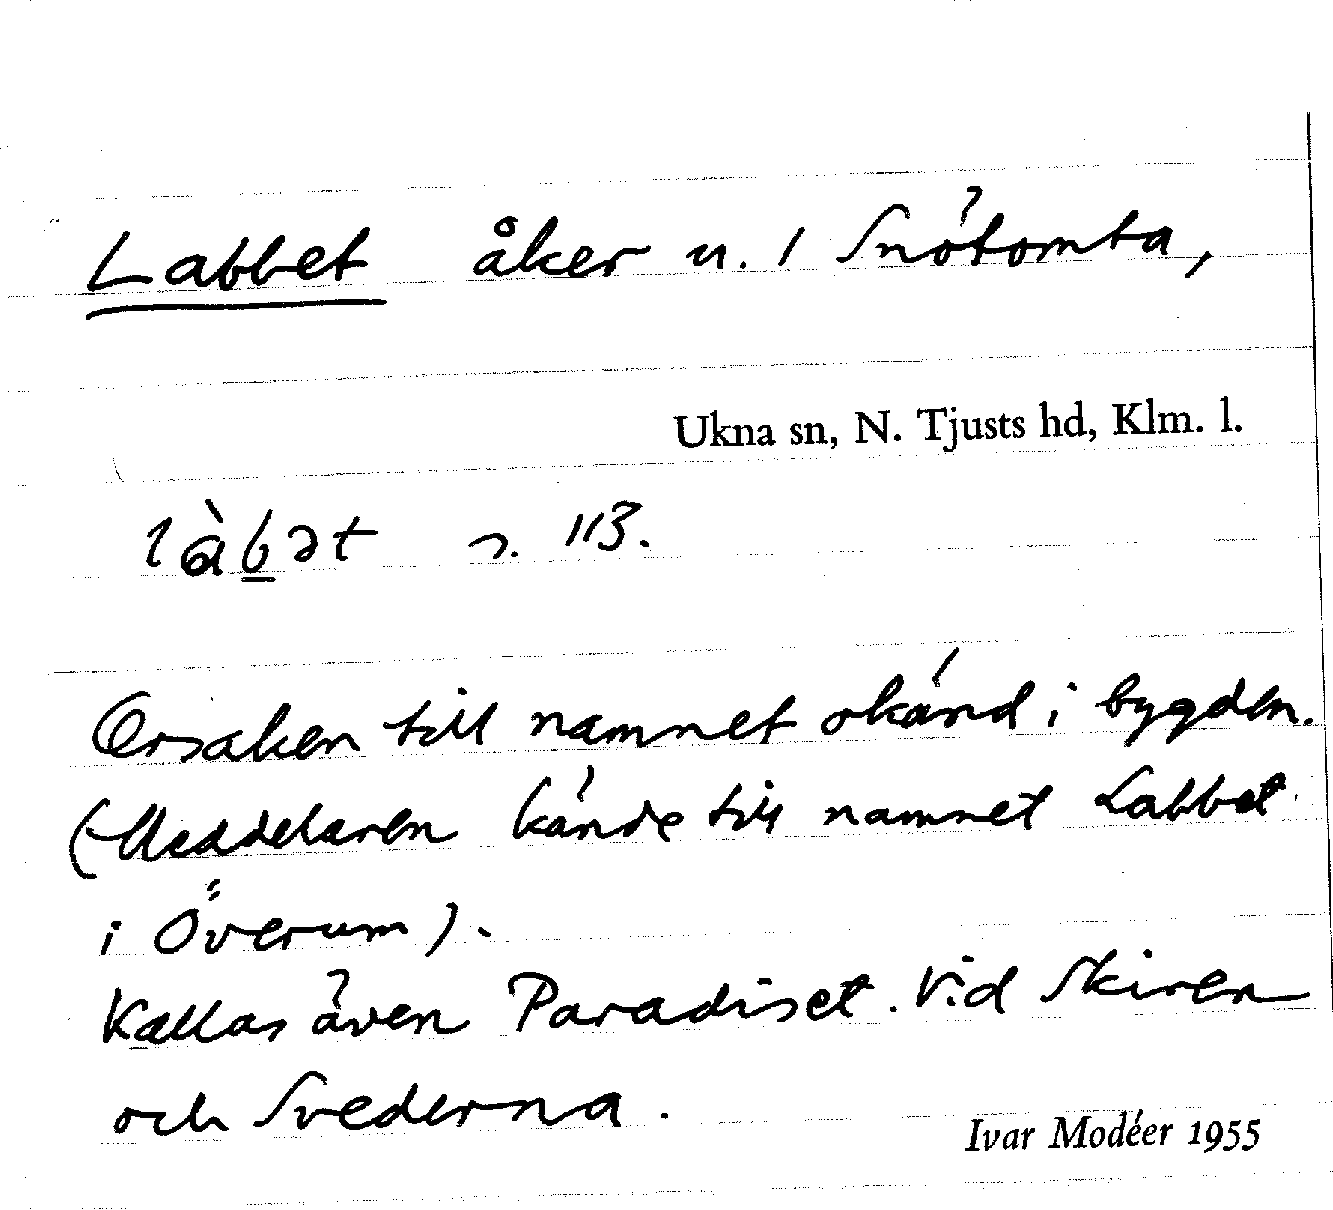 Labbet åker u. 1 Snötomta,
Ukna sn, N. Tjusts hd, Klm. l.
làb̲ət s. 113.
Orsaken till namnet okänd i bygden.
(Meddelaren kände till namnet Labbet
i Överum).
Kallas även Paradiset. Vid Skiren
och Svederna.
Ivar Modéer 1955